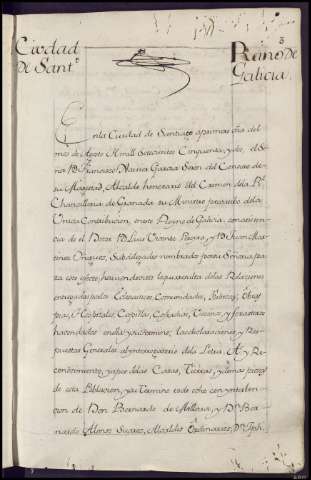 Ciudad
de Sant.º
3
Reino de
Galicia
En la Ciudad de Santiago a primero dia del
mes de Agosto de mill Setecientos Cinquenta, y dos, el Se
ñor Dⁿ Francisco Maria Garcia del Consejo de
su Magestad, Alcalde honorario del Crimen de la Rˡ
Chancilleria de Granada su Ministro para lo dela
Unica Contribucion, en este Reyno de Galicia, con asisten
cia de el Dᵒʳ Dⁿ Luis Vicente y Dⁿ Juan Mar
tinez Subdelegados nombrados por su Señoria pa
ra este efecto, haviendo visto lo que resulta delas Relaciones
entregadas por los Eclesiasticos, Comunidades, Obras
pias, Hospitales, Capillas, Cofradias, Vecinos, y forasteros
hacendados en ella y su termino, las declaraciones, y Res
puestas Generales al ynterrogatorio dela Letra A, y Re
conocimiento, y apeo delas Casas, Tierras, y demas
de esta Poblacion, y su Termino todo echo con ynterben
cion de Don Bernardo de y Dⁿ Ber
nardo Alonso Suarez, Alcaldes Ordinarios, Dⁿ Jph.